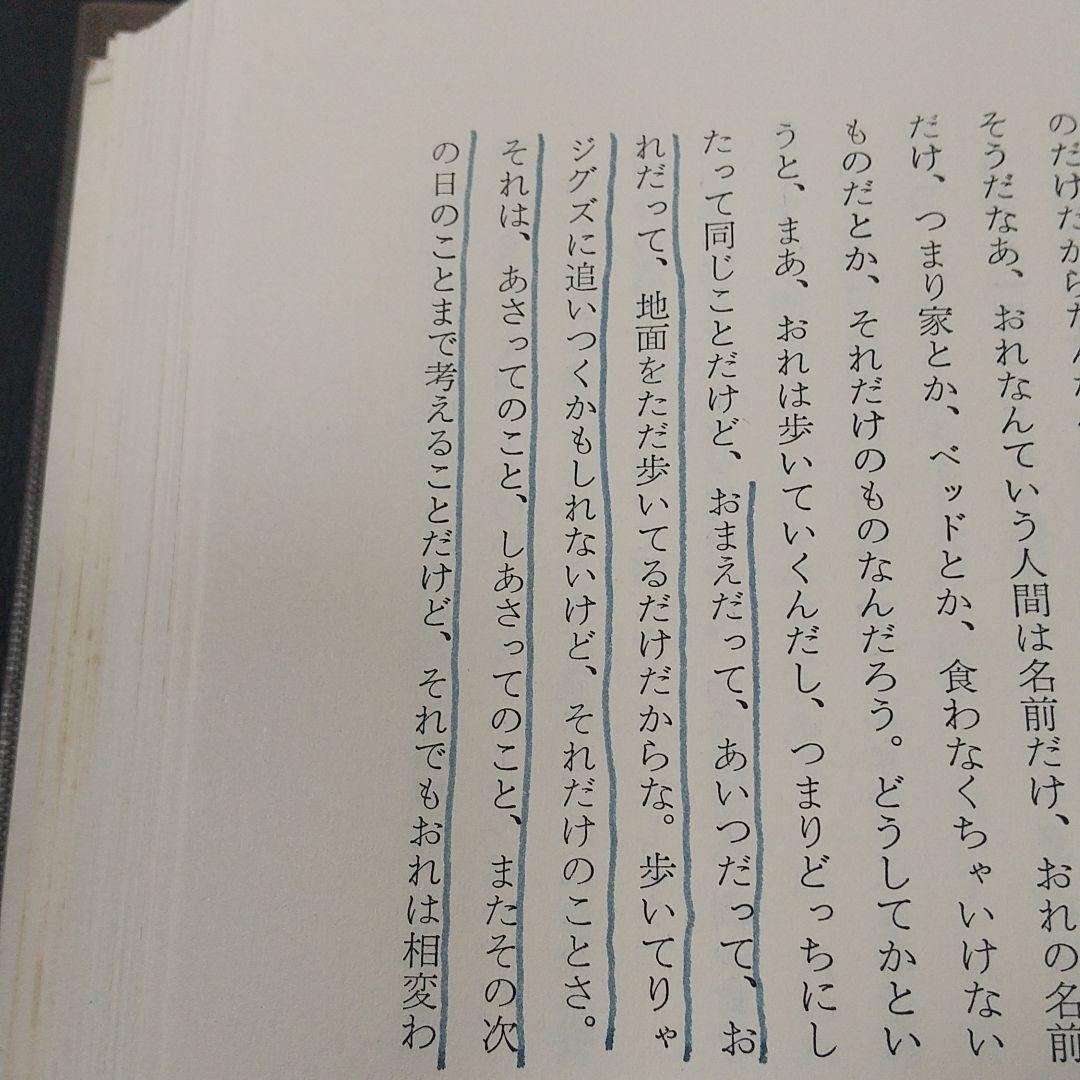 のだけだからだんだ
そうだなあ、おれなんていう人間は名前だけ、おれの名前
だけ、つまり家とか、ベッドとか、食わなくちゃいけない
ものだとか、それだけのものなんだろう。どうしてかとい
うと、まあ、おれは歩いていくんだし、つまりどっちにし
たって同じことだけど、おまえだって、あいつだって、お
れだって、地面をただ歩いてるだけだからな。歩いてりゃ
ジグズに追いつくかもしれないけど、それだけのことさ。
それは、あさってのこと、しあさってのこと、またその次
の日のことまで考えることだけど、それでもおれは相変わ